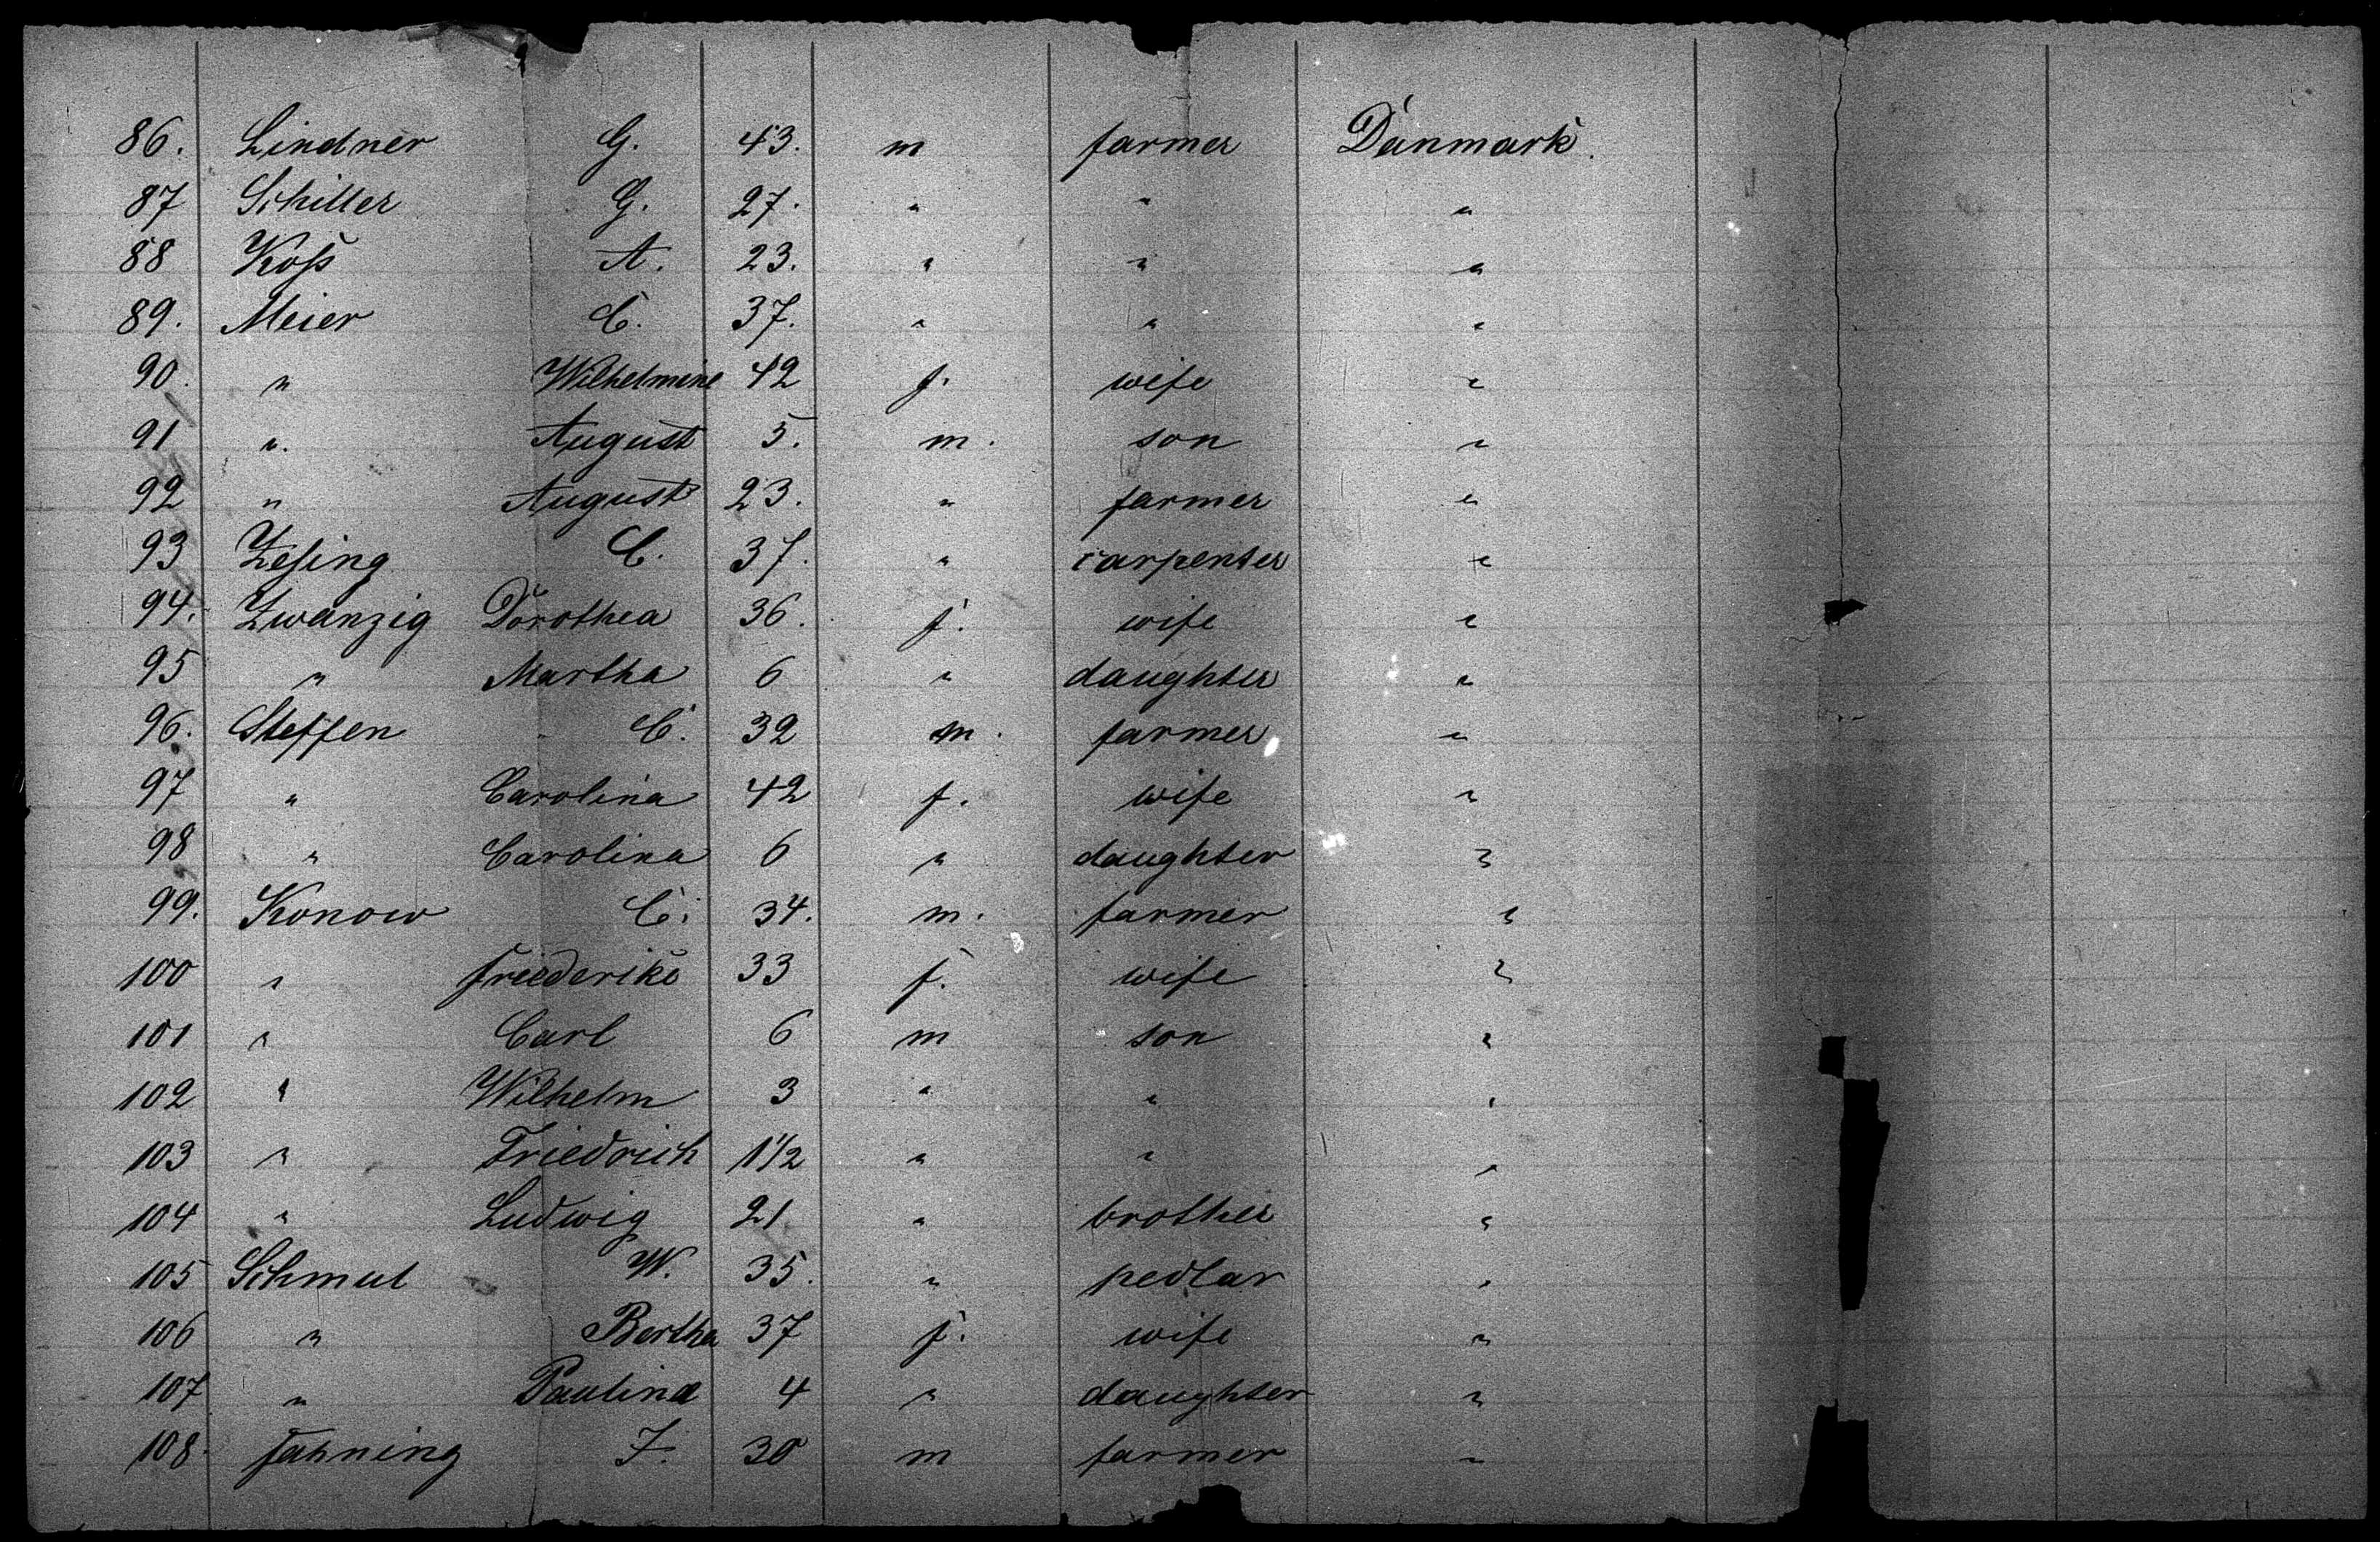 86. Lindner G. 43. m farmer Danmark.
87 Schiller G. 27. " " "
88 Koſs A. 23. " " "
89. Meier C. 37. " " "
90. " Wilhelmine 42 f. wife "
91 ". August 5. m. son "
92 " August 23. " farmer "
93 Zeſing C. 37. " carpenter "
94. Zwanzig Dorothea 36. f. wife "
95 " Martha 6 " daughter "
96. Steffen C. 32 m. farmer "
97 " Carolina 42 f. wife "
98 " Carolina 6 " daughter "
99. Konow C. 34. m. farmer "
100 " Freederike 33 f. wife "
101 " Carl 6 m son "
102 " Wilhelm 3 " " "
103 " Friedrich 1 1/2 " " "
104 " Ludwig 21 " brother "
105 Schmul W. 35. " pedlar "
106 " Bertha 37 f. wife "
107 " Paulina 4 " daughter "
108. Fahning F. 30 m farmer "